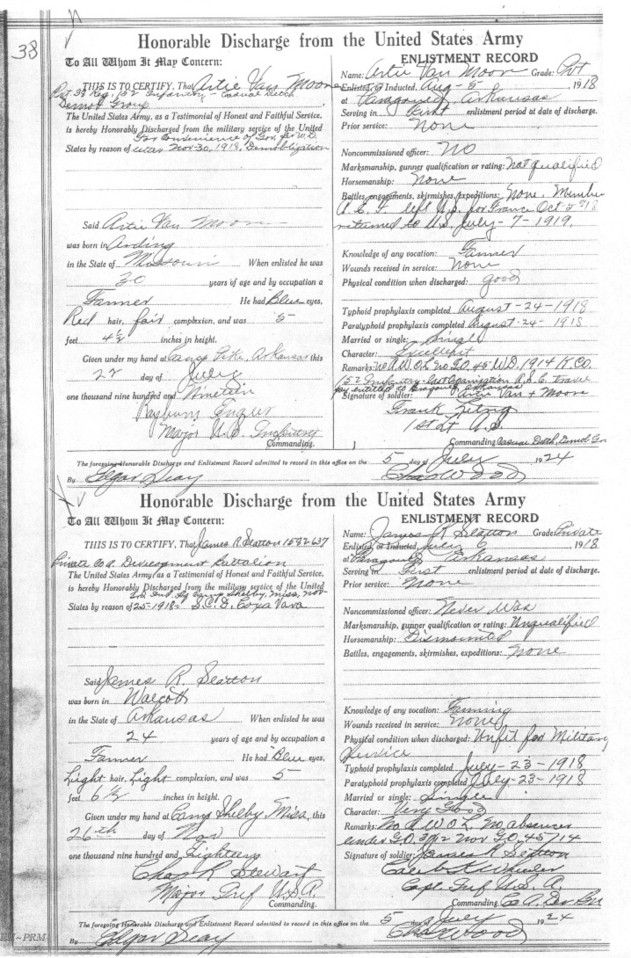 38
Honorable Discharge from the United States Army
To All Whom It May Concern:
THIS IS TO CERTIFY, That Artie Van Moon
Infantry - Casual Detch
Demob Group
The United States Army, as a Testimonial of Honest and Faithful Service,
is hereby Honorably Discharged from the military service of the United
For Convenience of Gov
States by reason of Nov 30, 1918, Demobilization
Said Artie Van Moon
was born in
in the State of Missouri When enlisted he was
30 years of age and by occupation a
Farmer He had Blue eyes,
Red hair, fair complexion, and was 5
feet 4½ inches in height.
Given under my hand at Camp Pike, Arkansas this
22 day of July
one thousand nine hundred and Nineteen
Major U.S. Infantry
Commanding.
ENLISTMENT RECORD
Name: Artie Van Moon Grade: Pvt
Enlisted, or Inducted, Aug - 5 - , 1918
at Paragould, Arkansas
Serving in First enlistment period at date of discharge.
Prior service: None
Noncommissioned officer: No
Marksmanship, gunner qualification or rating: not qualified
Horsemanship: None
Battles, engagements, skirmishes, expeditions: None. Member
A.E.F. left U.S. for France Oct 918
returned to U.S. July - 7 - 1919.
Knowledge of any vocation: Farmer
Wounds received in service: None
Physical condition when discharged: good
Typhoid prophylaxis completed August - 24 - 1918
Paratyphoid prophylaxis completed August - 24 - 1918
Married or single: Single
Character: Excellent
Remarks: No A.W.O.L. no G.O. 45 W.D. 1914
152 Infantry Last Organization
pay entitled to
Signature of soldier: Artie Van x Moon
Frank
1st Lt U.S.
Commanding Casual Detch, Demob Gr
The foregoing Honorable Discharge and Enlistment Record admitted to record in this office on the 5 day of July 1924
By Edgar Seay Chas Wood
Honorable Discharge from the United States Army
To All Whom It May Concern:
THIS IS TO CERTIFY, That James R. Slatton 1582637
Private Co A. Development Battalion
The United States Army, as a Testimonial of Honest and Faithful Service,
is hereby Honorably Discharged from the military service of the United
Camp Shelby, Miss, Nov
States by reason of 25-1918 S.C.D.
Said James R. Slatton
was born in Walcott
in the State of Arkansas When enlisted he was
24 years of age and by occupation a
Farmer He had Blue eyes,
Light hair, Light complexion, and was 5
feet 6½ inches in height.
Given under my hand at Camp Shelby Miss, this
26th day of Nov
one thousand nine hundred and Eighteen
Chas R. Stewart
Major Inf U.S.A.
Commanding.
ENLISTMENT RECORD
Name: James R Slatton Grade Private
Enlisted, or Inducted, July 6 , 1918
at Paragould Arkansas
Serving in First enlistment period at date of discharge.
Prior service: None
Noncommissioned officer: Never Was
Marksmanship, gunner qualification or rating: Unqualified
Horsemanship: Dismounted
Battles, engagements, skirmishes, expeditions: None
Knowledge of any vocation: Farming
Wounds received in service: None
Physical condition when discharged: Unfit for Military
Service
Typhoid prophylaxis completed July - 23 - 1918
Paratyphoid prophylaxis completed July - 23 - 1918
Married or single: Single
Character: Very Good
Remarks: No A.W.O.L. No absences
under G.O. 31/12 nor G.O. 45/14
Signature of soldier: James R Slatton
Wheeler
Capt Inf U.S.A.
Commanding Co A. Dev Bn
The foregoing Honorable Discharge and Enlistment Record admitted to record in this office on the 5 day July 1924
By Edgar Seay Chas Wood